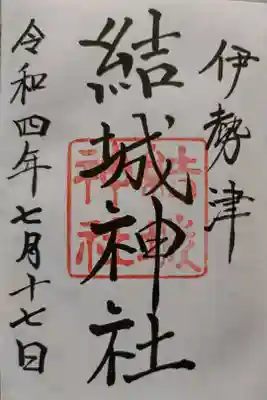 伊勢津
結城神社
令和四年七月十七日
結城
神社